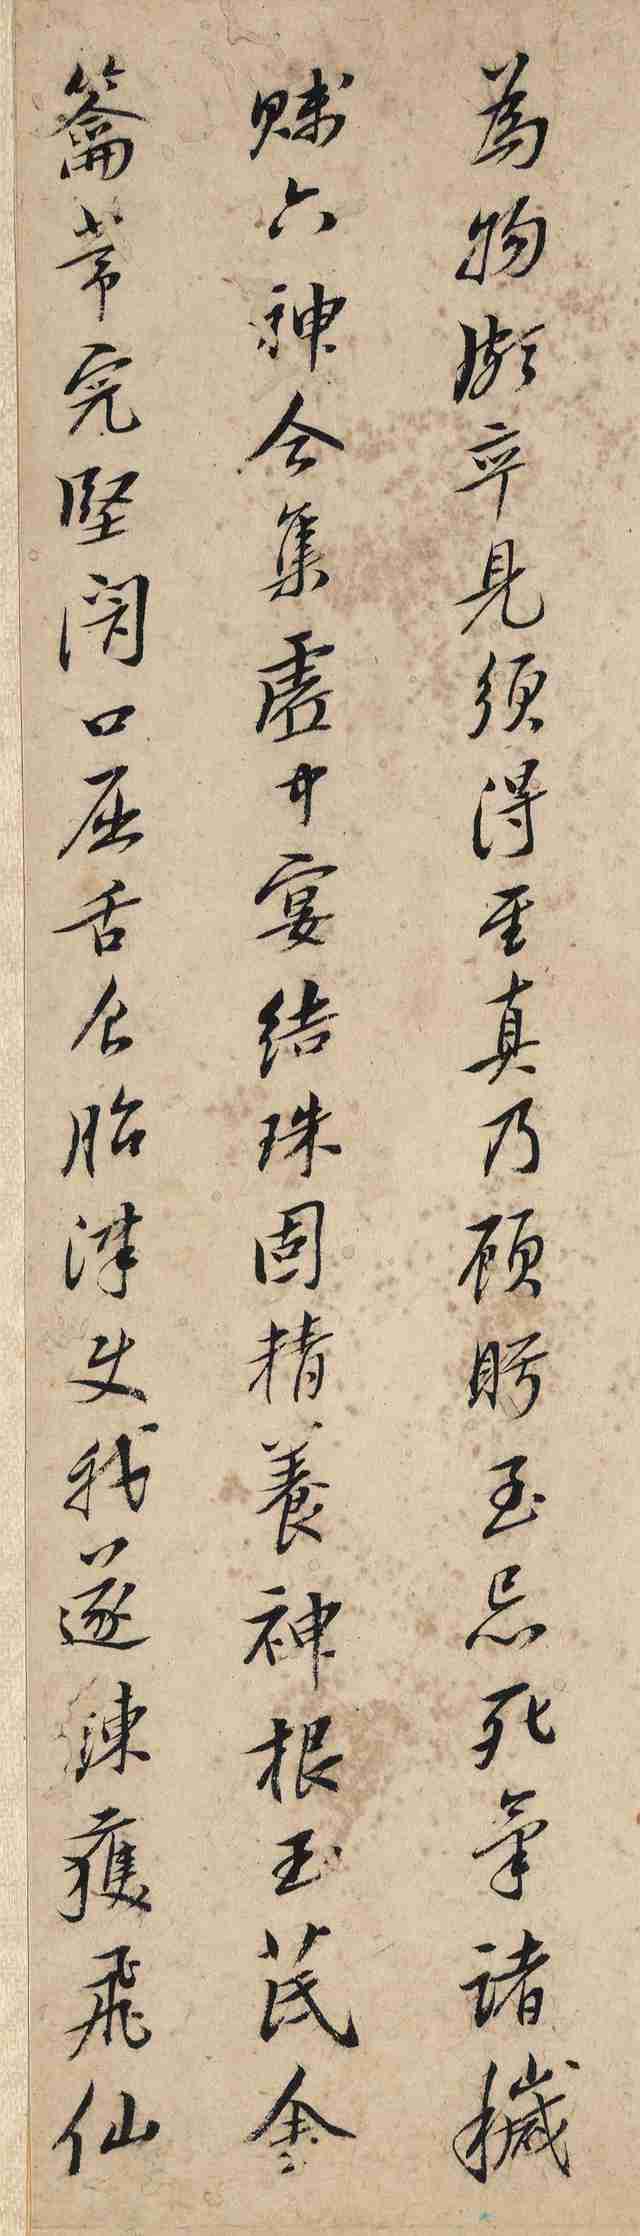 為物頗卒見須得至真乃顧眄至忌死氣諸穢
賤六神合集虛中宴結珠固精養神根玉芪金
籥常完堅閉口屈舌食胎津使我遂鍊獲飛仙